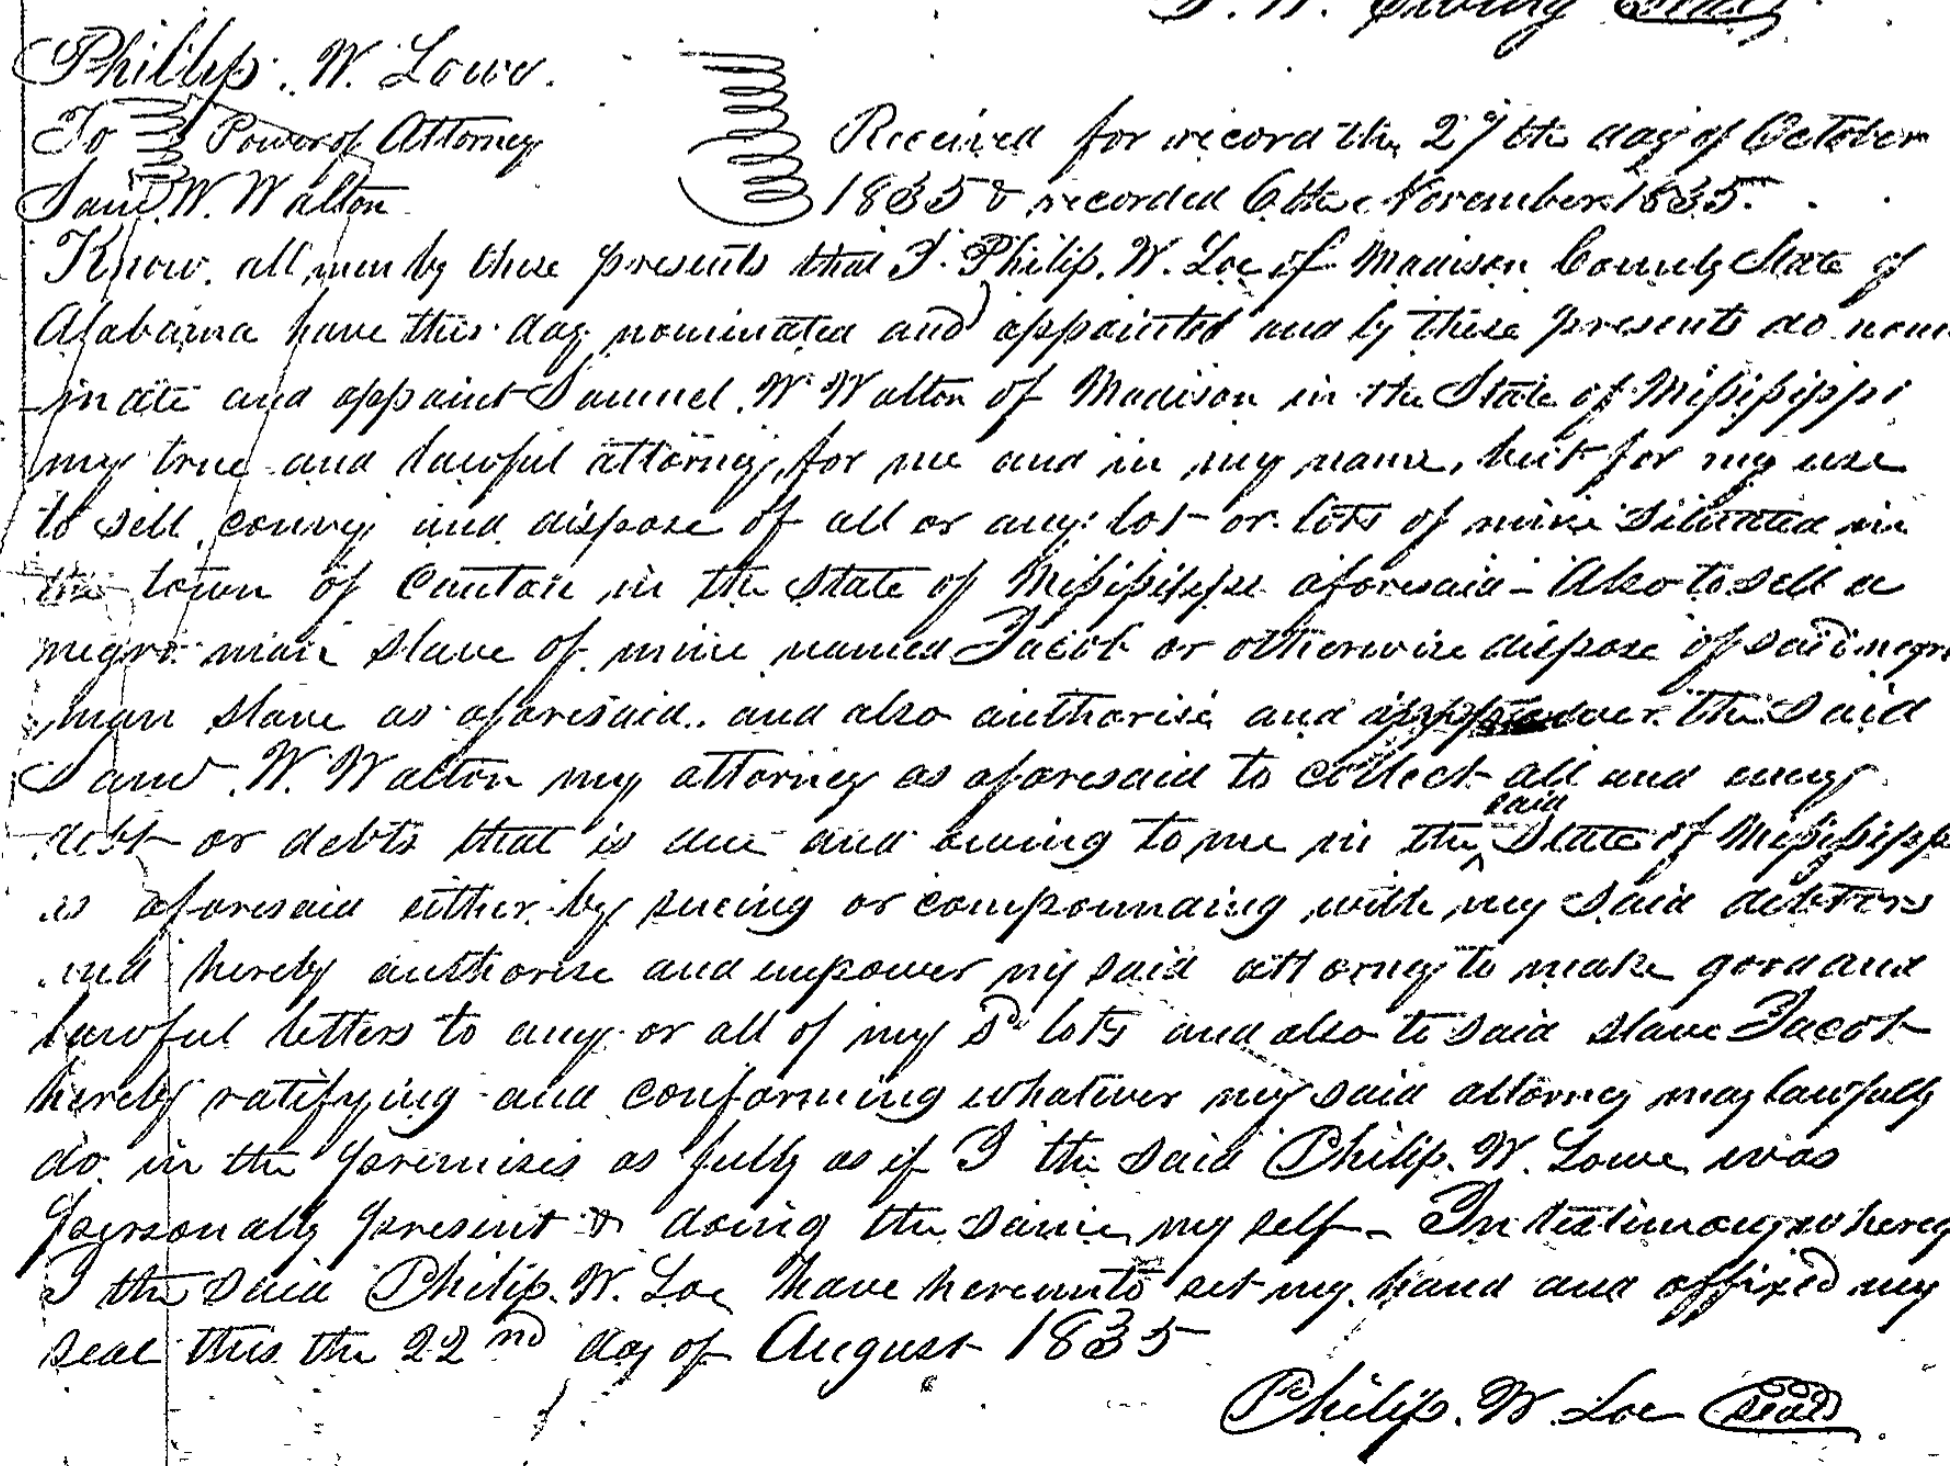 Phillip. W. Lowe.
To Power of Attorney
Saml. W. Walton
Received for record the 27th day of October
1835 & recorded 6th November 1835.
Know all men by these presents that I. Philip. W. Loe of Madison County State of
Alabama have this day nominated and appointed and by these presents do nom
-inate and appoint Samuel. W Walton of Madison in the State of Missisippi
my true and lawful attorney, for me and in my name, but for my use
to sell, convey and dispose of all or any lot or lots of mine situated in
the town of Canton in the State of Missisippi aforesaid - Also to sell a
negro man slave of mine named Jacob or otherwise dispose of said negro
man slave as aforesaid. and also authorise and the said
Saml. W. Walton my attorney as aforesaid to collect all and every
debt or debts that is due and owing to me in the said State of Missisippi
as aforesaid either by sueing or compounding with my said debtors
and hereby authorise and empower my said attorney to make good and
lawful letters to any or all of my sd lots and also to said slave Jacob
hereby ratifying and conforming whatever my said attorney may lawfully
do in the premises as fully as if I the said Philip. W. Lowe was
personally present & doing the same my self - In testimony whereof
I the said Philip. W. Loe have hereunto set my hand and affixed my
seal this the 22nd day of August 1835
Philip. W. Loe Seal